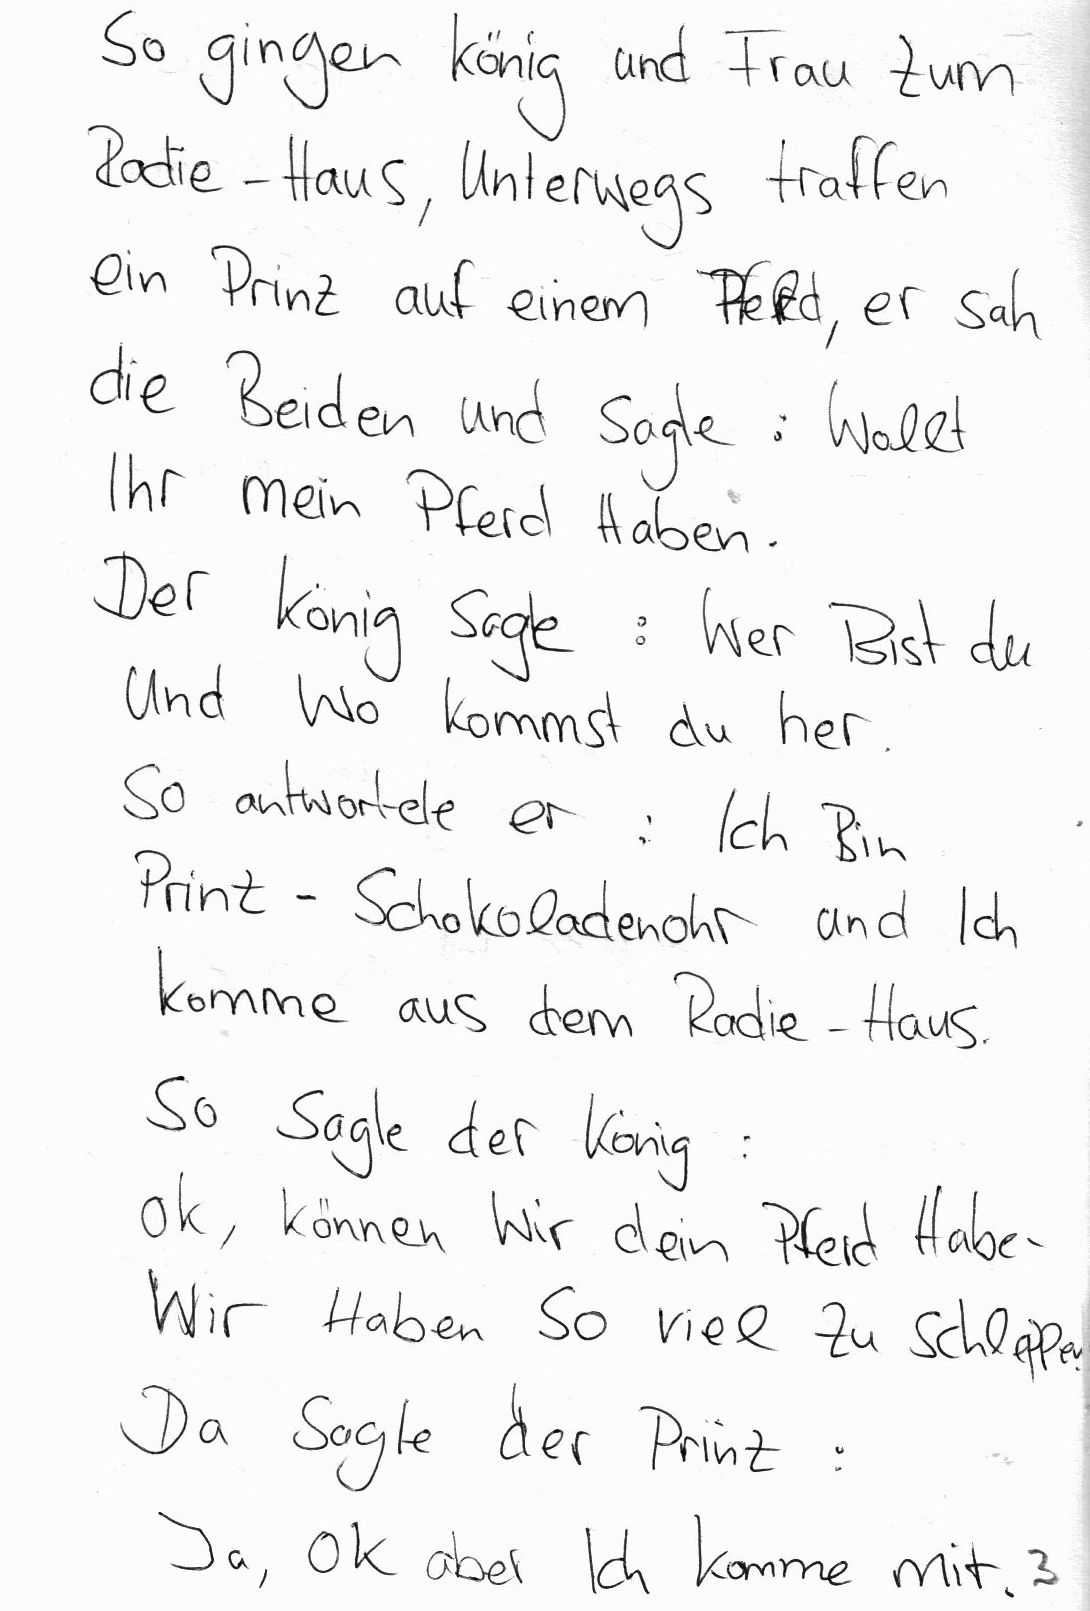 So gingen könig und Frau zum
Radie-Haus, Unterwegs traffen
ein Prinz auf einem Pferd, er sah
die Beiden und Sagte: Wollt
Ihr mein Pferd Haben.
Der könig Sagte: Wer Bist du
Und Wo kommst du her.
So antwortete er: Ich Bin
Prinz-Schokoladenohr und Ich
komme aus dem Radie-Haus.
So Sagte der König:
Ok, können Wir dein Pferd Habe-
Wir Haben So viel Zu Schleppen
Da Sagte der Prinz:
Ja, Ok aber Ich komme mit. 3